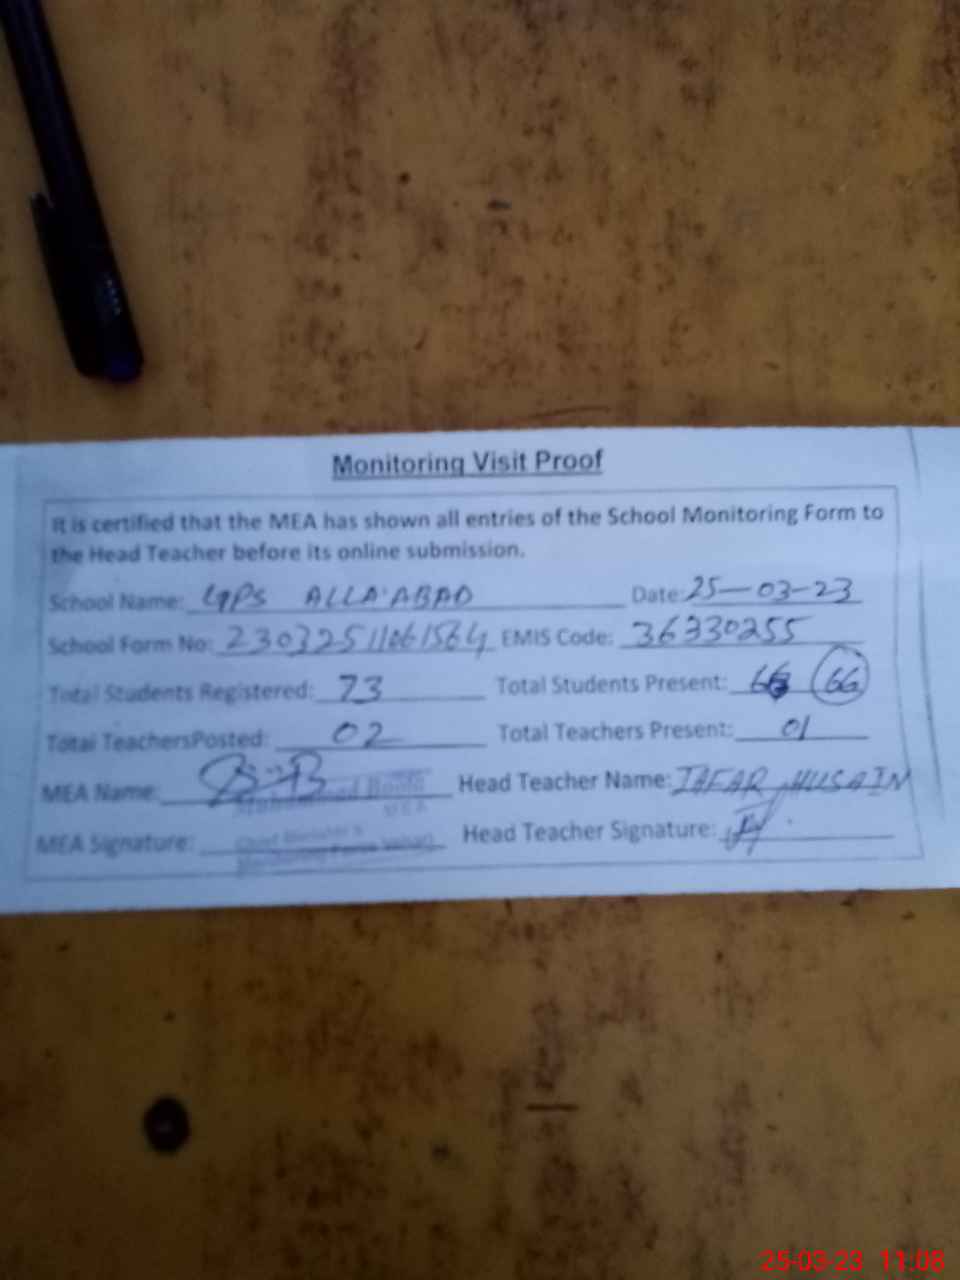 Monitoring Visit Proof
It is certified that the MEA has shown all entries of the School Monitoring Form to
the Head Teacher before its online submission.
School Name: GPS ALLA'ABAD Date: 25-03-23
School Form No: EMIS Code: 36330255
Total Students Registered: 73 Total Students Present: 66
Total TeachersPosted: 02 Total Teachers Present: 01
MEA Name: Head Teacher Name: HUSAIN
MEA
MEA Signature: Head Teacher Signature:
25-03-23 11:08